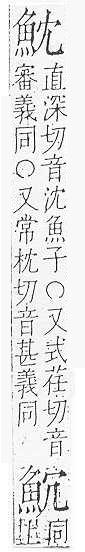 魫
直深切音沈魚子○又式荏切音
審義同○又常枕切音甚義同
魫
同
上